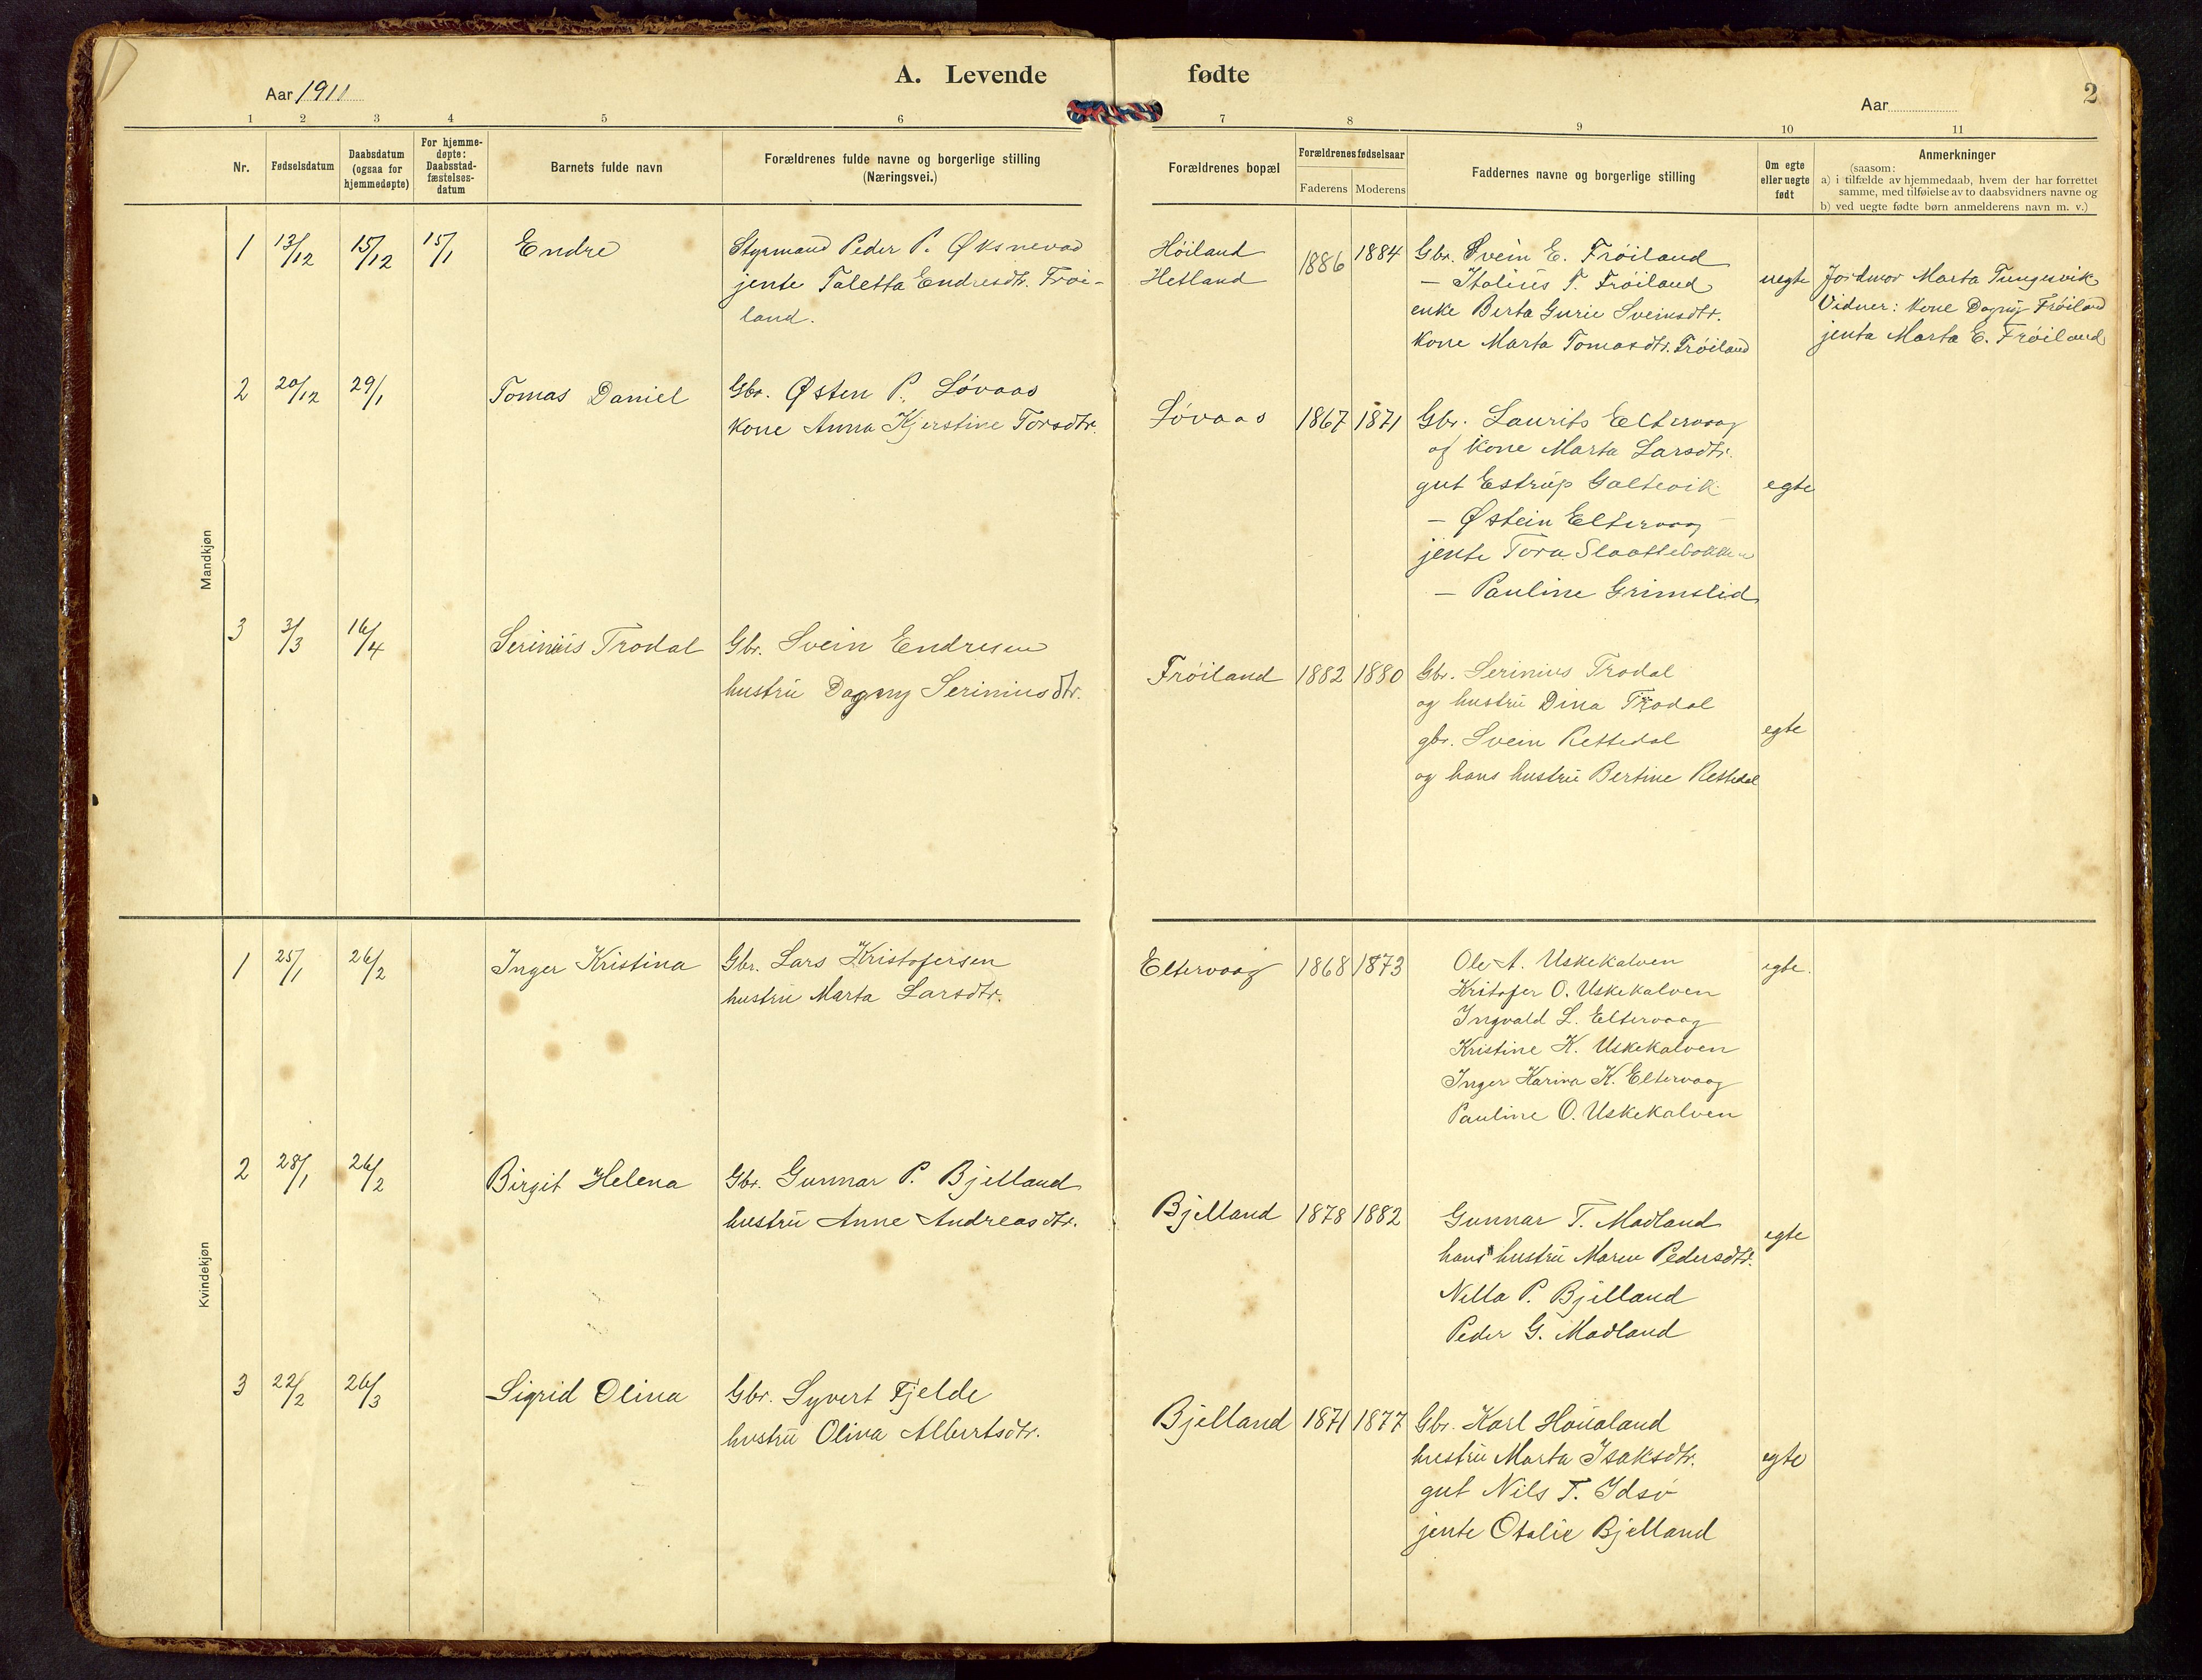 A. Levende fødte
Aar 1911
Aar
2
1 2 3 4 5 6 7 8 9 10 11
Nr.
Fødselsdatum
Daabsdatum
(ogsaa for
hjemmedøpte)
For hjemme-
døpte:
Daabsstad-
fæstelses-
datum
Barnets fulde navn
Forældrenes fulde navne og borgerlige stilling
(Næringsvei.)
Forældrenes bopæl
Forældrenes fødselsaar
Faderens Moderens
Faddernes navne og borgerlige stilling
Om egte
eller uegte
født
Anmerkninger
(saasom:
a) i tilfælde av hjemmedaab, hvem der har forrettet
samme, med tilføielse av to daabsvidners navne og
b) ved uegte fødte børn anmelderens navn m. v.)
Mandkjøn
1 13/12 15/12 15/1 Endre
Styrmand Peder P. Øksnevad
jente Taletta Endresdtr. Frøi-
land.
Høiland
Hetland
1886 1884
Gbr. Svein E. Frøiland
— Italius T. Frøiland
enke Berta Gurie Sveinsdtr.
kone Marta Tomasdtr. Frøiland
uegte
Jordmor Marta Tungesvik
Vidner: kone Dagny Frøiland
jenta Marta E. Frøiland
2 20/12 29/1 Tomas Daniel
Gbr. Østen P. Løvaas
kone Anna Kjerstine Torsdtr.
Løvaas 1867 1871
Gbr. Laurits Eltervaag
og kone Marta Larsdtr.
gut Estrup Galtevik
— Østein Eltervaag
jente Tora Slaattebakken
— Pauline Grimslid
egte
3 3/3 16/4 Serinius Trodal
Gbr. Svein Endresen
hustru Dagny Seriniusdtr.
Frøiland 1882 1880
Gbr. Serinius Trodal
og hustru Dina Trodal
gbr. Svein Rettedal
og hans hustru Bertine Rettedal
egte
Kvindekjøn
1 25/1 26/2 Inger Kristina
Gbr. Lars Kristofersen
hustru Marta Larsdtr.
Eltervaag 1868 1873
Ole A. Uskekalven
Kritofer O. Uskekalven
Ingvald L. Eltervaag
Kristine K. Uskekalven
Inger Karina K. Eltervaag
Pauline O. Uskekalven
egte.
2 28/1 26/2 Birgit Helena
Gbr. Gunnar P. Bjelland
hustru Anne Andreasdtr.
Bjelland 1878 1882
Gunnar T. Madland
hans hustru Maren Pedersdtr.
Nella P. Bjelland
Peder G. Madland
egte
3 22/2 26/3 Sigrid Olina
Gbr. Syvert Fjelde
hustru Olina Albertsdtr.
Bjelland 1871 1877
Gbr. Karl Haualand
hustru Marta Isaksdtr.
gut Nils T. Idsø
jente Otalie Bjelland
egte